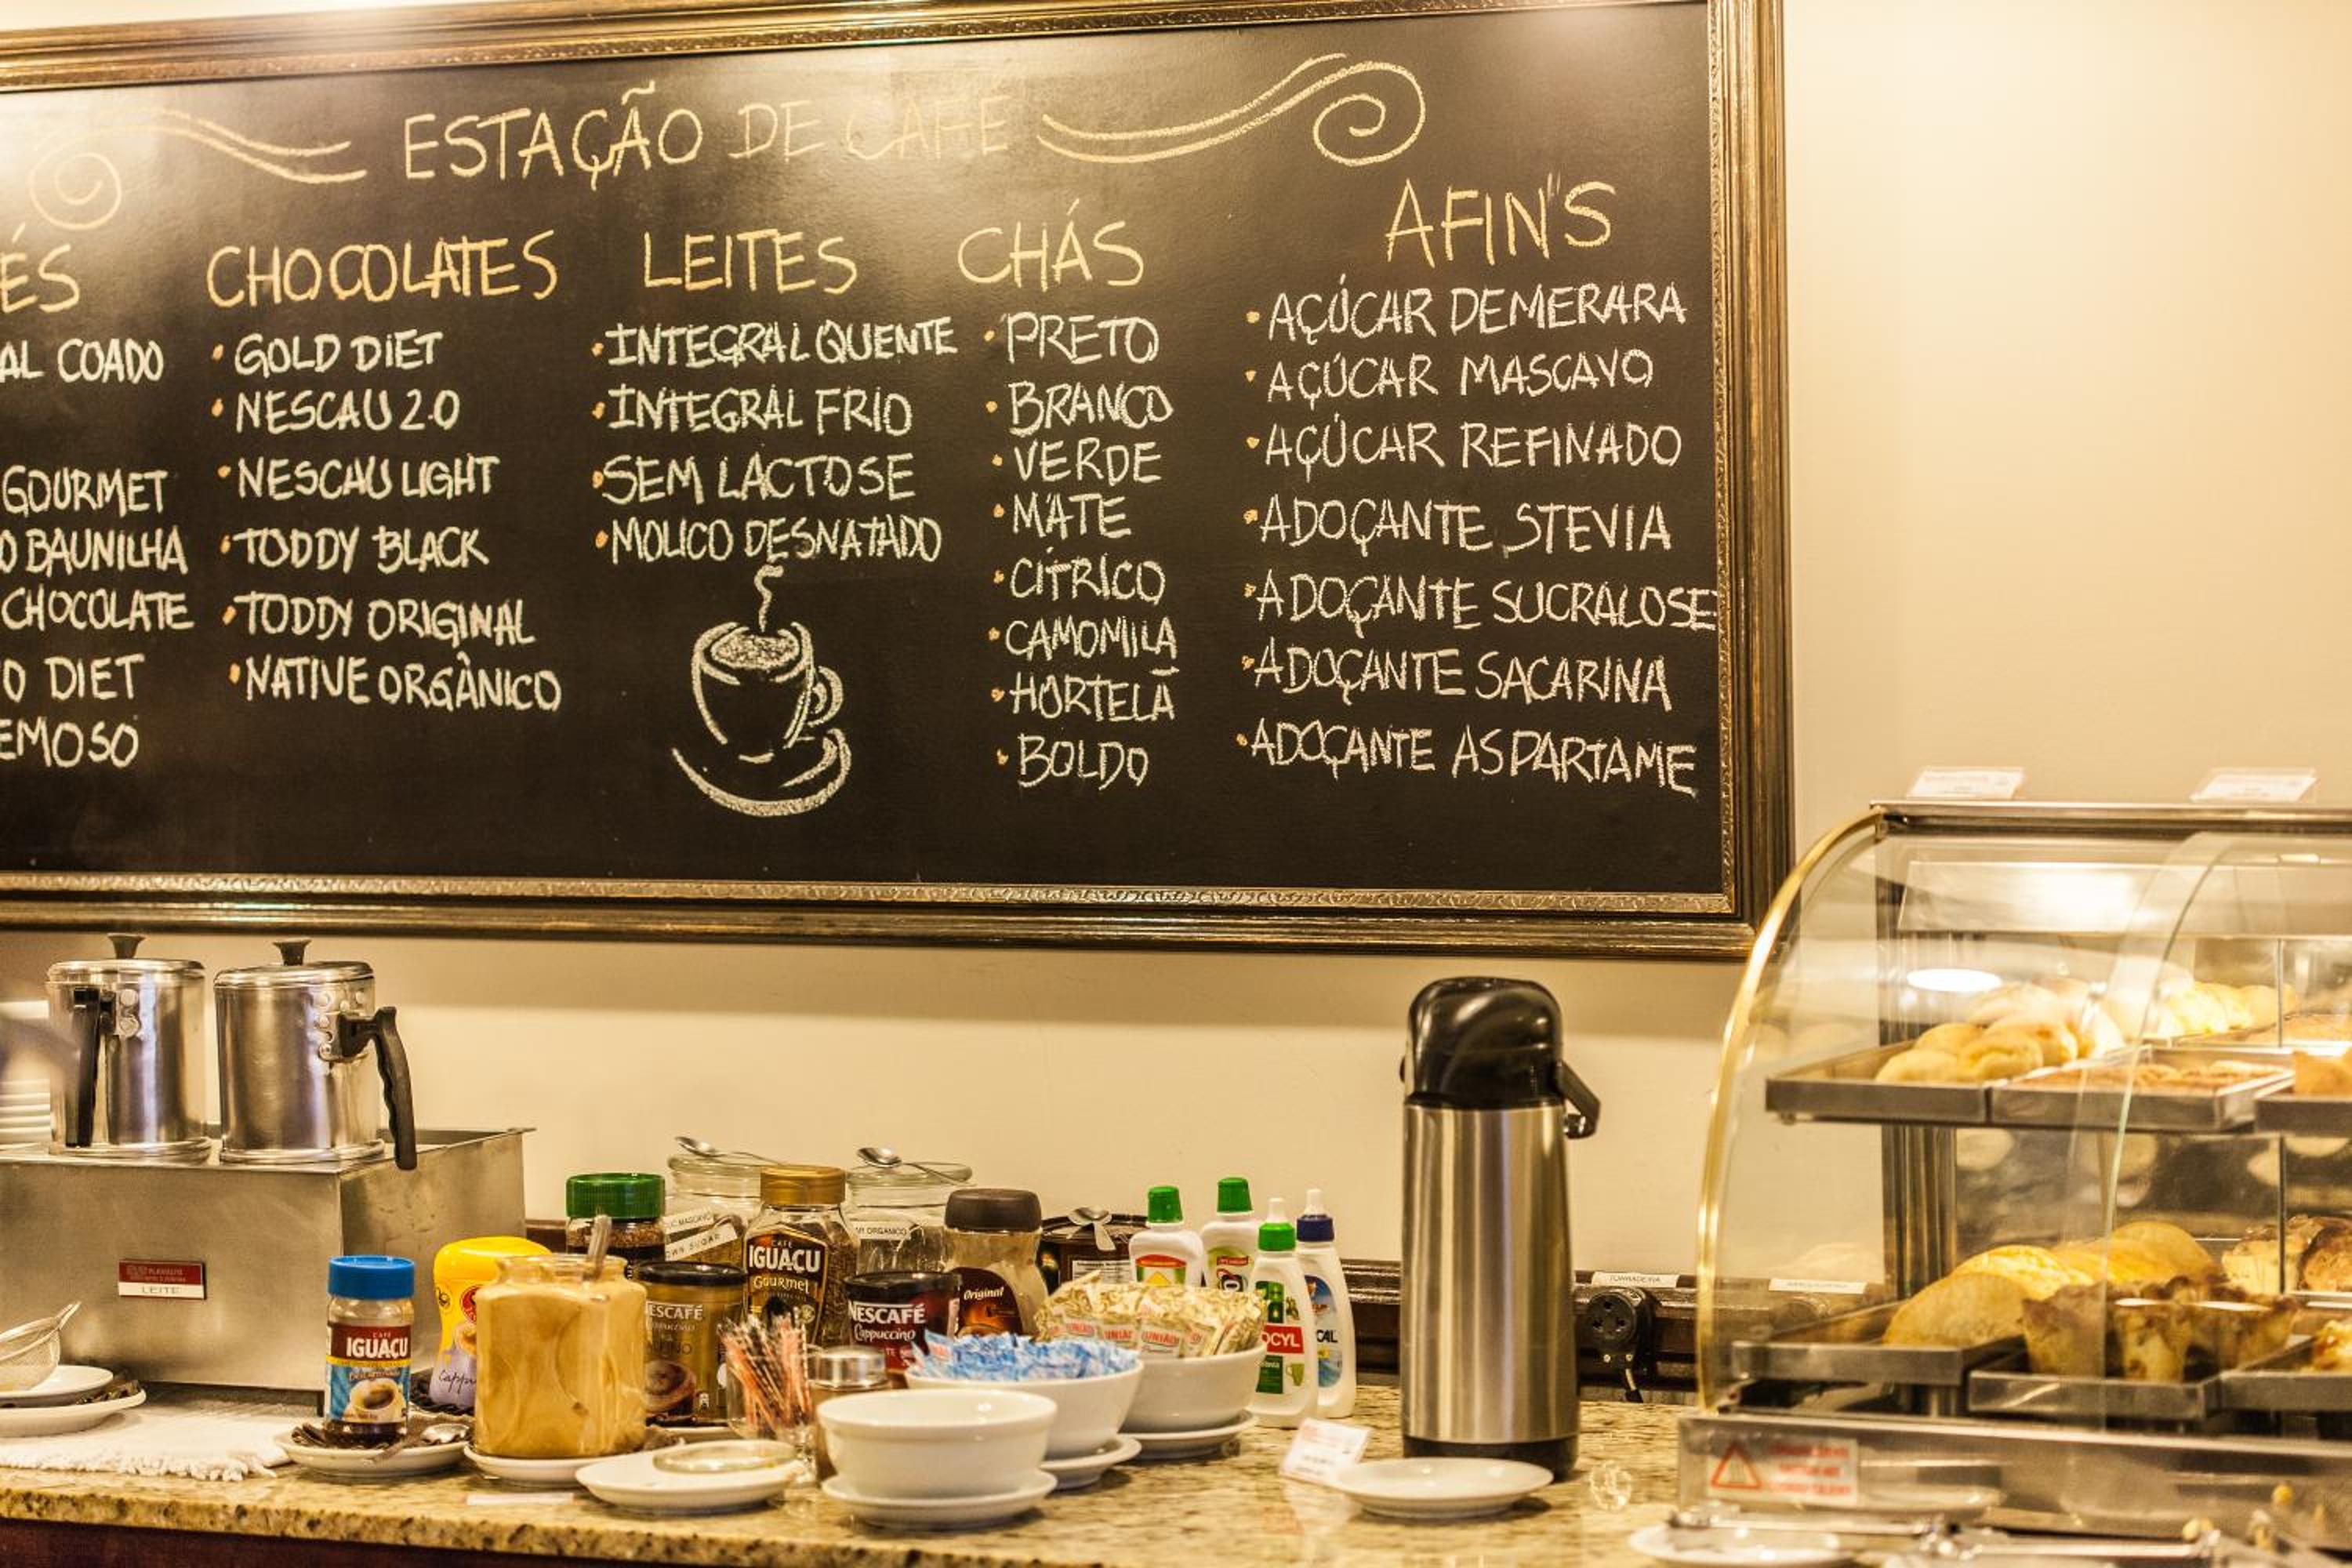 ESTAÇÃO DE CAFÉ
ÉS
AL COADO
GOURMET
O BAUNILHA
CHOCOLATE
O DIET
EMOSO
CHOCOLATES
• GOLD DIET
• NESCAU 2.0
• NESCAU LIGHT
• TODDY BLACK
• TODDY ORIGINAL
• NATIVE ORGÂNICO
LEITES
• INTEGRAL QUENTE
• INTEGRAL FRIO
• SEM LACTOSE
• MOLICO DESNATADO
CHÁS
• PRETO
• BRANCO
• VERDE
• MATE
• CÍTRICO
• CAMOMILA
• HORTELÃ
• BOLDO
AFIN'S
• AÇÚCAR DEMERARA
• AÇÚCAR MASCAVO
• AÇÚCAR REFINADO
• ADOÇANTE STEVIA
• ADOÇANTE SUCRALOSE
• ADOÇANTE SACARINA
• ADOÇANTE ASPARTAME
LEITE
CAFÉ
IGUAÇU
Capp
ESCAFÉ
MASCAVO
WN SUGAR
CAFÉ
IGUAÇU
Gourmet
ORGANICO
NESCAFÉ
Cappuccino
Original
UNIÃO
UNIÃO
UNIÃO
OCYL
CAL
TORRADEIRA